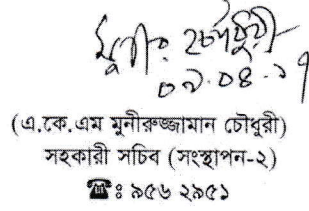 ০৯.০৪.১৭
(এ.কে.এম মুনীরুজ্জামান চৌধুরী)
সহকারী সচিব (সংস্থাপন-২)
☎ঃ ৯৫৬ ২৯৫১